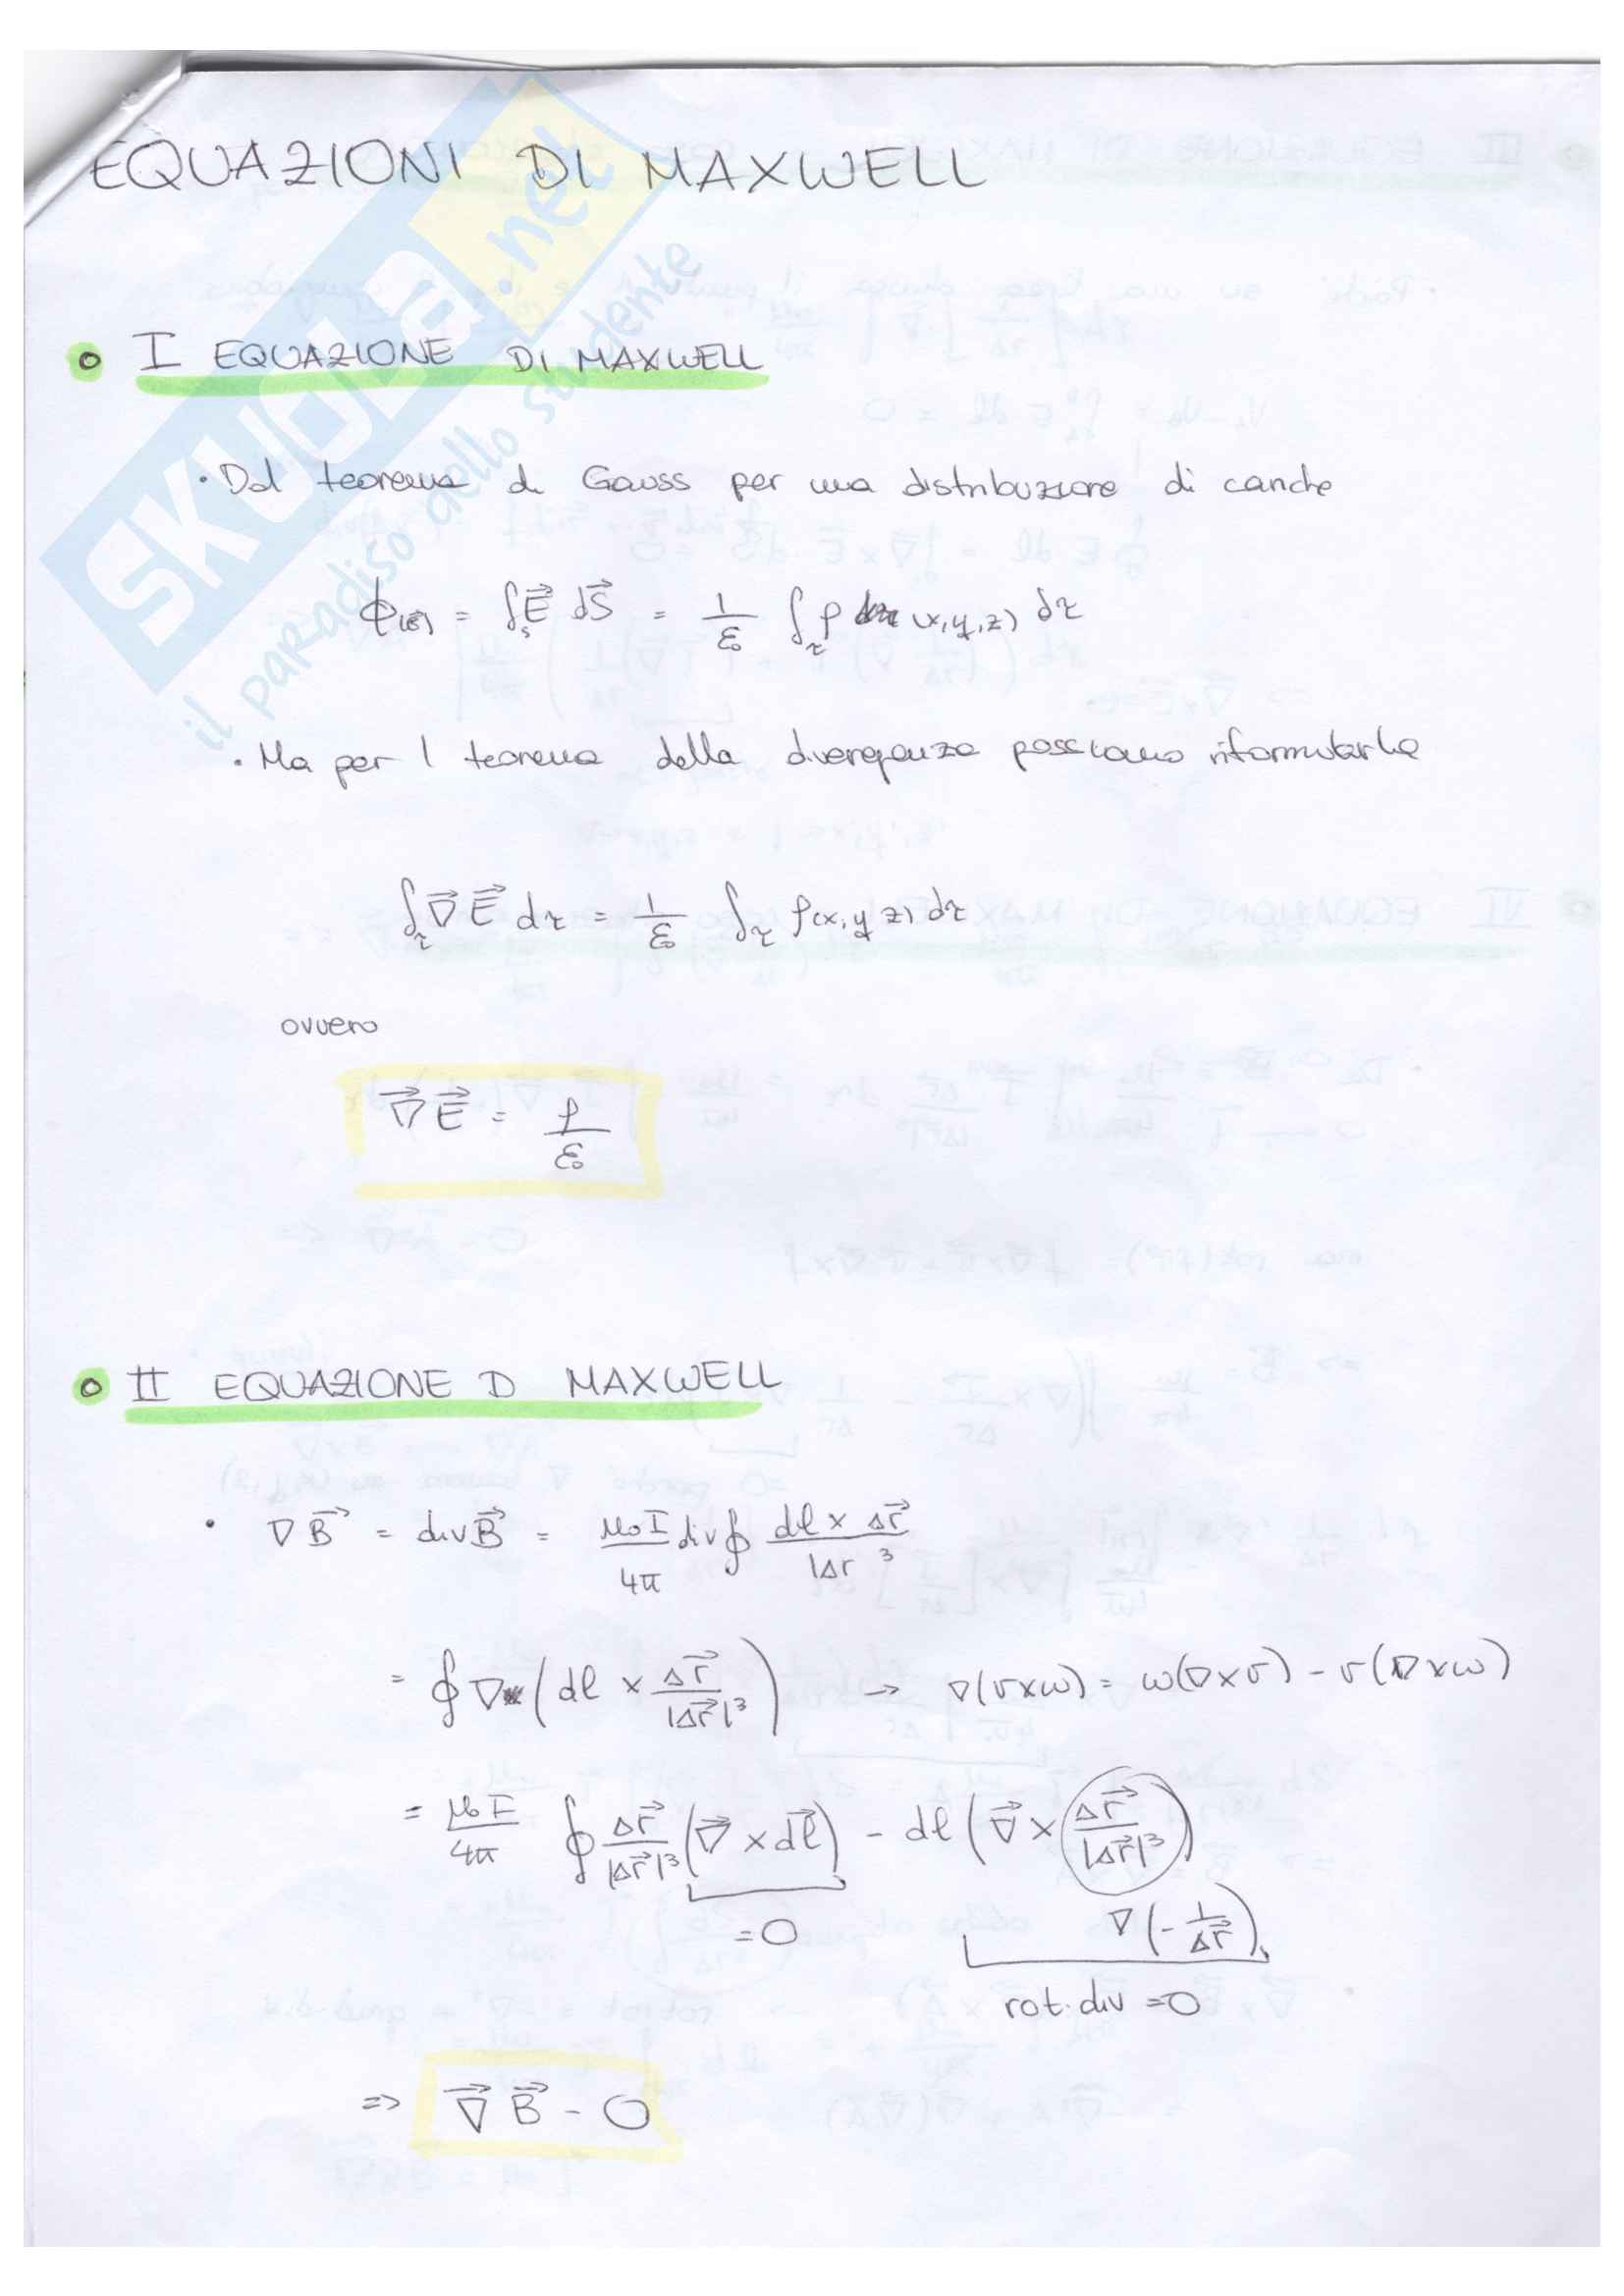 EQUAZIONI DI MAXWELL
SKUOLA.net
il paradiso dello studente
I EQUAZIONE DI MAXWELL
· Dal teorema di Gauss per una distribuzione di cariche
Φ(E⃗) = ∫ₛ E⃗ dS⃗ = 1/ε₀ ∫τ ρ (x,y,z) dτ
· Ma per l teorema della divergenza possiamo riformularla
∫τ ∇⃗ E⃗ dτ = 1/ε₀ ∫τ ρ(x,y z) dτ
ovvero
∇⃗ E⃗ = ρ/ε₀
II EQUAZIONE D MAXWELL
· ∇ B⃗ = div B⃗ = μ₀I/4π div ∮ dl × Δr⃗ / |Δr ³
= ∮ ∇ (dl × Δr⃗/|Δr⃗|³) → ∇(v×ω) = ω(∇×v) - v(∇×ω)
= μ₀I/4π ∮ Δr⃗/|Δr⃗|³ (∇⃗ × dl⃗) - dl (∇⃗ × Δr⃗/|Δr⃗|³)
=0 ∇(-1/Δr⃗)
rot. div =0
=> ∇⃗ B⃗ - 0